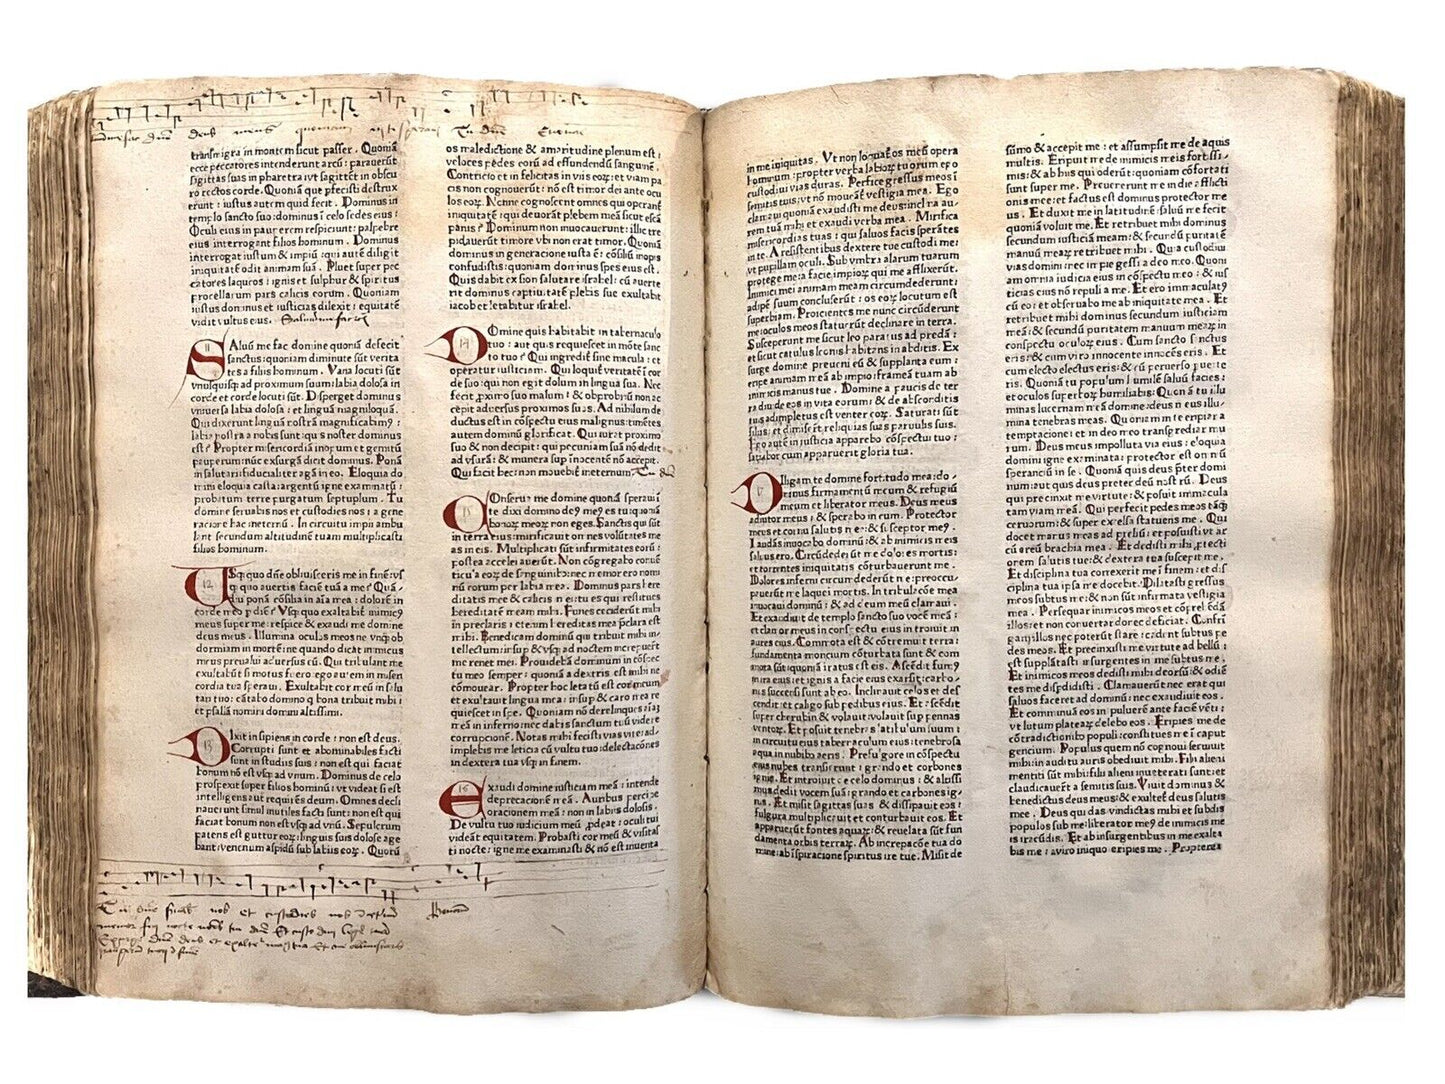 transmigra in montem sicut passer. Quoniā
ecce peccatores intenderunt arcū: parauerūt
sagittas suas in pharetra ɩvt sagittēt in obscu
ro rectos corde. Quoniā que pfecisti destrux
erunt: iustus autem quid fecit. Dominus in
templo sancto suo: dominus ī celo sedes eius:
Oculi eius in pauperem respiciunt: palpebre
eius interrogant filios hominum. Dominus
interrogat iustum & impiū: qui autē diligit
iniquitatē odit animam suā. Pluet super pec
catores laqueos: ignis et sulphur & spiritus
procellarum pars calicis eorum. Quoniam
iustus dominus et iusticias dilexit: equitatē
vidit vultus eius. Saluum fac
11
SAluū me fac domine quoniā defecit
sanctus: quoniam diminute sūt verita
tes a filiis hominum. Vana locuti sūt
vnusquisqȝ ad proximum suum: labia dolosa in
corde et corde locuti sūt. Disperget dominus
vniuersa labia dolosa: et linguā magniloquā.
Qui dixerunt linguā nostrā magnificabimꝰ:
labia nostra a nobis sunt: quis noster dominus
est? Propter miseriā inopum et gemitū
pauperum: nūc exsurgā dicit dominus. Ponā
in salutari: fiducialiter agā in eo. Eloquia do
mini eloquia casta: argentū igne examinatū:
probatum terre purgatum septuplum. Tu
domine seruabis nos et custodies nos: a gene
ratione hac ineternū. In circuitu impii ambu
lant secundum altitudinē tuam multiplicasti
filios hominum.
12
VSqȝ quo dn̄e obliuisceris me in finē: vs
qȝ quo auertis faciē tuā a me? Quā
diu ponā cōsilia in aīa mea: dolorē in
corde meo p diē? Vsqȝ quo exaltabit̄ inimicꝰ
meus super me: respice & exaudi me domine
deus meus. Illumina oculos meos ne vnqȝ ob
dormiam in morte: ne quando dicat inimicus
meus preualui aduersus eū. Qui tribulant me
exultabūt si motus fuero: ego autem in miseri
cordia tua speraui. Exultabit cor meū in salu
tari tuo: cātabo domino qȝ bona tribuit mihi:
et psallā nomini domini altissimi.
13
DIxit insipiens in corde: non est deus.
Corrupti sunt et abominabiles facti
sunt in studiis suis: non est qui faciat
bonum nō est vsqȝ ad vnum. Dominus de celo
prospexit super filios hominū: vt videat si est
intelligens aut requirēs deum. Omnes decli
nauerunt simul inutiles facti sunt: non est qui
faciat bonum non est vsqȝ ad vnū. Sepulcrum
patens est guttur eoꝝ: linguis suis dolose age
bant: venenum aspidū sub labiis eoꝝ. Quorū
os maledictione & amaritudine plenum est:
veloces pedes eorū ad effundendū sanguinē.
Contricio et infelicitas in viis eoꝝ: et viam pa
cis non cognouerūt: nō est timor dei ante ocu
los eoꝝ. Nōne cognoscent omnes qui operant̄
iniquitatē: qui deuorāt plebem meā sicut escā
panis? Dominum non inuocauerunt: illic tre
pidauerūt timore vbi non erat timor. Quoniā
dominus in generacione iusta ē: cōsiliū inopis
confudistis: quoniam dominus spes eius est.
Quis dabit ex sion salutare israhel: cū auerte
rit dominus captiuitatē plebis sue exultabit
iacob et letabitur israhel.
14
DOmine quis habitabit in tabernaculo
tuo: aut quis requiescet in mōte sanc
to tuo? Qui ingredit̄ sine macula: et
operatur iusticiam. Qui loquit̄ veritatē ī cor
de suo: qui non egit dolum in lingua sua. Nec
fecit proximo suo malum: & obprobriū non ac
cepit aduersus proximos suos. Ad nihilum de
ductus est in cōspectu eius malignus: timētes
autem dominū glorificat. Qui iurat proximo
suo & non decipit: qui pecuniam suā nō dedit
ad vsurā: & munera sup innocentē nō accepit.
Qui facit hec: non mouebit̄ ineternum.
15
COnserua me domine quoniā speraui ī
te dixi domino deꝰ meꝰ es tu: quoniā
bonoꝝ meoꝝ non eges. Sanctis qui sūt
in terra eius: mirificauit omnes volūtates me
as in eis. Multiplicati sūt infirmitates eorū:
postea accelerauerūt. Non cōgregabo conuē
ticula eoꝝ de sanguinibꝰ: nec memor ero nomi
nū eorum per labia mea. Dominus pars here
ditatis mee & calicis mei: tu es qui restitues
hereditatē meam mihi. Funes ceciderūt mihi
in preclaris: etenim hereditas mea p̄clara est
mihi. Benedicam dominū qui tribuit mihi in
tellectum: insup & vsqȝ ad noctem increpuerūt
me renes mei. Prouidebā dominum in cōspec
tu meo semper: quoniā a dextris est mihi ne
cōmouear. Propter hoc letatū est cor meum
et exultauit lingua mea: insup & caro mea re
quiescet in spe. Quoniam nō derelinques aīaȝ
meā in inferno: nec dabis sanctum tuū videre
corrupcionē. Notas mihi fecisti vias vite: ad
implebis me leticia cū vultu tuo: delectacōnes
in dextera tua vsqȝ in finem.
16
EXaudi domine iusticiam meā: intende
deprecacionē meā. Auribus percipe
oracionem meā: non in labiis dolosis.
De vultu tuo iudicium meū ꝓdeat: oculi tui
videāt equitatem. Probasti cor meū & visitas
ti nocte: igne me examinasti & nō est inuenta
in me iniquitas. Vt non loquat̄ os meū opera
hominum: propter verba labioꝝ tuorum ego
custodiui vias duras. Perfice gressus meos ī
semitis tuis: vt nō moueāt̄ vestigia mea. Ego
clamaui quoniā exaudisti me deus: inclina au
rem tuā mihi et exaudi verba mea. Mirifica
misericordias tuas: qui saluos facis sperātes
in te. A resistentibus dextere tue custodi me:
vt pupillam oculi. Sub vmbra alarum tuarum
protege me: a facie impioꝝ qui me afflixerūt.
Inimici mei animam meam circumdederunt:
adipē suum concluserūt: os eoꝝ locutum est
superbiam. Proicientes me nunc circūderunt
me: oculos meos statuerūt declinare in terra.
Susceperunt me sicut leo paratus ad predā:
et sicut catulus leonis habitans in abditis. Ex
surge domine preueni eū & supplanta eum:
eripe animam meā ab impio: frameā tuam ab
inimicis manus tue. Domine a paucis de ter
ra diuide eos in vita eorum: & de absconditis
tuis adimpletus est venter eoꝝ. Saturati sūt
filiis: et dimiserūt reliquias suas paruulis suis.
Ego autē in iusticia apparebo cōspectui tuo:
satiabor cum apparuerit gloria tua.
17
DIligam te domine fortitudo mea: do
minus firmamentū meum & refugiū
meum et liberator meus. Deus meus
adiutor meus: & sperabo in eum. Protector
meus et cornu salutis mee: & susceptor meꝰ.
Laudās inuocabo dominū: & ab inimicis meis
saluus ero. Circūdederūt me dolores mortis:
et torrentes iniquitatis cōturbauerunt me.
Dolores inferni circumdederūt me: preoccu
pauerūt me laquei mortis. In tribulacōe mea
inuocaui dominū: & ad deum meū clamaui.
Et exaudiuit de templo sancto suo vocē meā:
et clamor meus in conspectu eius introiuit in
aures eius. Commota est & cōtremuit terra:
fundamenta moncium cōturbata sunt & com
mota sūt: quoniā iratus est eis. Ascēdit fumꝰ
in ira eius: et ignis a facie eius exarsit: carbo
nes succensi sunt ab eo. Inclinauit celos et des
cendit: et caligo sub pedibus eius. Et ascēdit
super cherubin & volauit: volauit sup pennas
ventoꝝ. Et posuit tenebras latibulum suum:
in circuitu eius tabernaculum eius: tenebrosa
aqua in nubibus aeris. Prefulgore in cōspectu
eius nubes transierunt: grando et carbones
ignis. Et intonuit de celo dominus: & altissi
mus dedit vocem suā: grando et carbones ig
nis. Et misit sagittas suas & dissipauit eos:
fulgura multiplicauit et conturbauit eos. Et
apparuerūt fontes aquaꝝ: & reuelata sūt fun
damenta orbis terraꝝ. Ab increpacōe tua do
mine: ab īspiracione spiritus ire tue. Misit de
summo & accepit me: et assumpsit me de aquis
multis. Eripuit me de inimicis meis fortissi
mis: & ab hiis qui oderūt: quoniam cōfortati
sunt super me. Preuenerunt me in die afflicti
onis mee: et factus est dominus protector me
us. Et eduxit me in latitudinē: saluū me fecit
quoniā voluit me. Et retribuet mihi dominus
secundum iusticiā meam: & secundū puritatē
manuū meaꝝ retribuet mihi. Quia custodiui
vias domini: nec impie gessi a deo meo. Quoni
am omnia iudicia eius in cōspectu meo: & ius
ticias eius nō repuli a me. Et ero immaculatꝰ
cū eo: et obseruabo me ab iniquitate mea. Et
retribuet mihi dominus secundum iusticiam
meā: & secundū puritatem manuum meaꝝ in
conspectu oculoꝝ eius. Cum sancto sanctus
eris: & cum viro innocente innocēs eris. Et
cum electo electus eris: & cū peruerso puerte
ris. Quoniā tu populum humilē saluū facies:
et oculos superboꝝ humiliabis. Quoniā tu illu
minas lucernam meā domine: deus meus illu
mina tenebras meas. Quoniam in te eripiar a
temptacione: et in deo meo transgrediar mu
rum. Deus meus impolluta via eius: eloquia
domini igne examinata: protector est omniū
sperantiū in se. Quoniā quis deus p̄ter domi
num: aut quis deus preter deū nostrū. Deus
qui precinxit me virtute: & posuit immacula
tam viam meā. Qui perfecit pedes meos tāqȝ
ceruorum: & super excelsa statuens me. Qui
docet manus meas ad preliū: et posuisti vt ar
cū ereū brachia mea. Et dedisti mihi ꝓtecti
onem salutis tue: & dextera tua suscepit me.
Et disciplina tua correxit me ī finem: et dis
ciplina tua ipsa me docebit. Dilatasti gressus
meos subtus me: & non sūt infirmata vestigia
mea. Persequar inimicos meos et cōprehēdā
illos: et non conuertar donec deficiāt. Confri
gam illos nec poterūt stare: cadent subtus pe
des meos. Et precinxisti me virtute ad bellū:
est supplātasti insurgentes in me subtus me.
Et inimicos meos dedisti mihi dorsū: & odiē
tes me disperdidisti. Clamauerūt nec erat qui
saluos faceret: ad dominū: nec exaudiuit eos.
Et comminuā eos in puluerē ante faciē vēti:
vt lutum plateaꝝ delebo eos. Eripies me de
cōtradictionibus populi: constitues me ī caput
gencium. Populus quem nō cognoui seruiuit
mihi: in auditu auris obediuit mihi. Filii alieni
mentiti sūt mihi: filii alieni inueterati sunt: et
claudicauerūt a semitis suis. Viuit dominus &
benedictus deus meus: & exultet̄ deus salutis
mee. Deus qui das vindictas mihi et subdis
populos sub me: liberator meꝰ de inimicis me
is iracūdis. Et ab insurgentibus in me exalta
bis me: a viro iniquo eripies me. Propterea